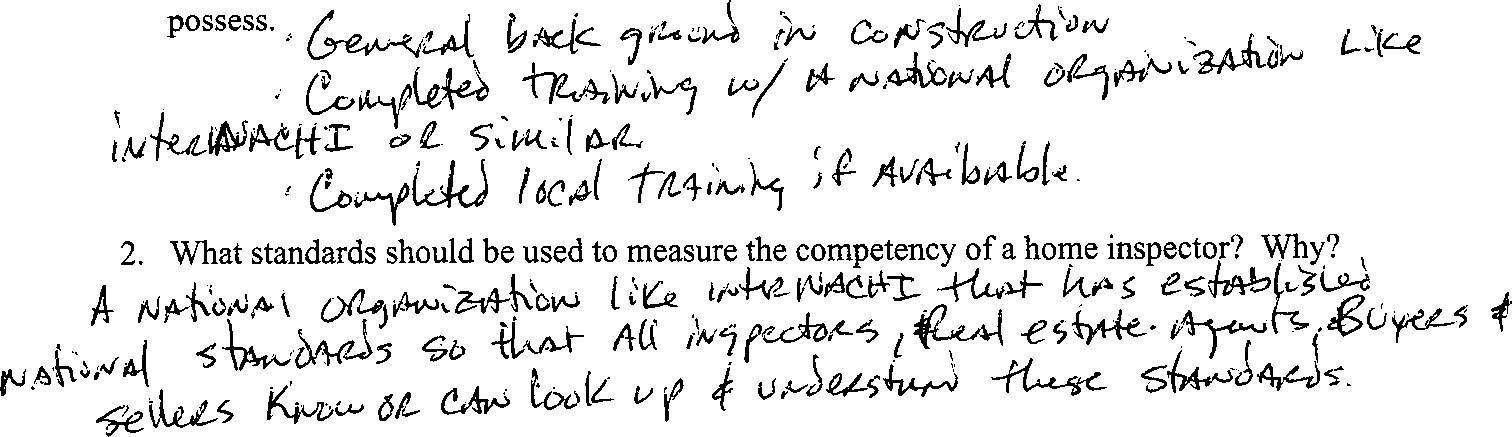 possess. · General back ground in construction
· Completed training w/ a national organization like
interNACHI or similar.
· Completed local training if available.
2. What standards should be used to measure the competency of a home inspector? Why?
A national organization like interNACHI that has established
national standards so that all inspectors, Real estate Agents, Buyers &
sellers know or can look up & understand these standards.